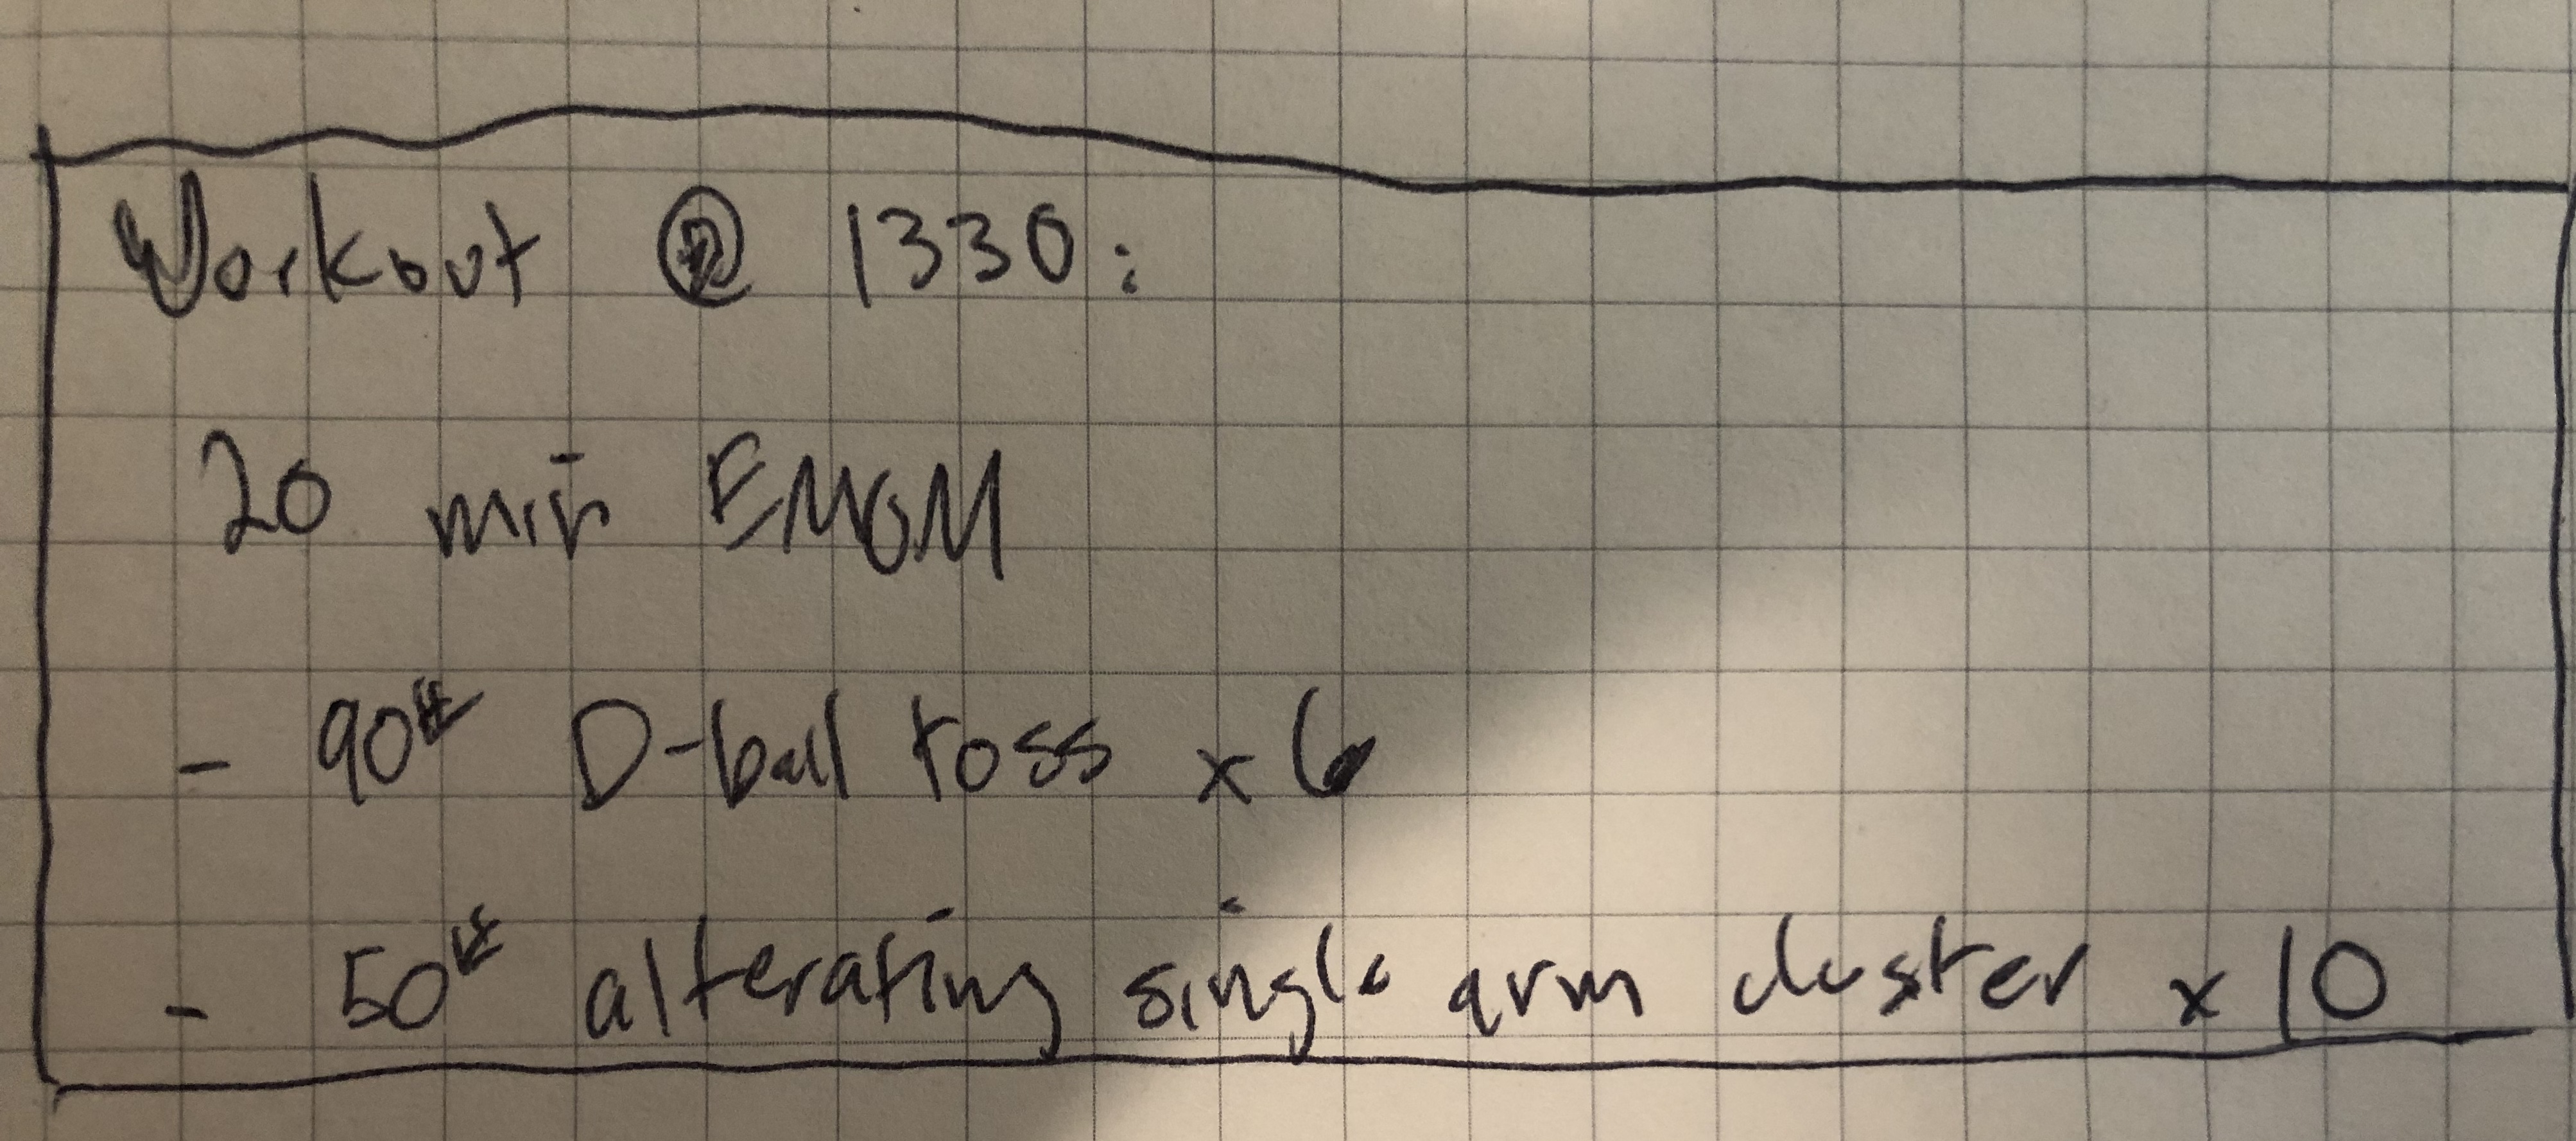 Workout @ 1330:
20 min EMOM
- 90# D-ball toss x 6
- 50# alterating single arm cluster x 10